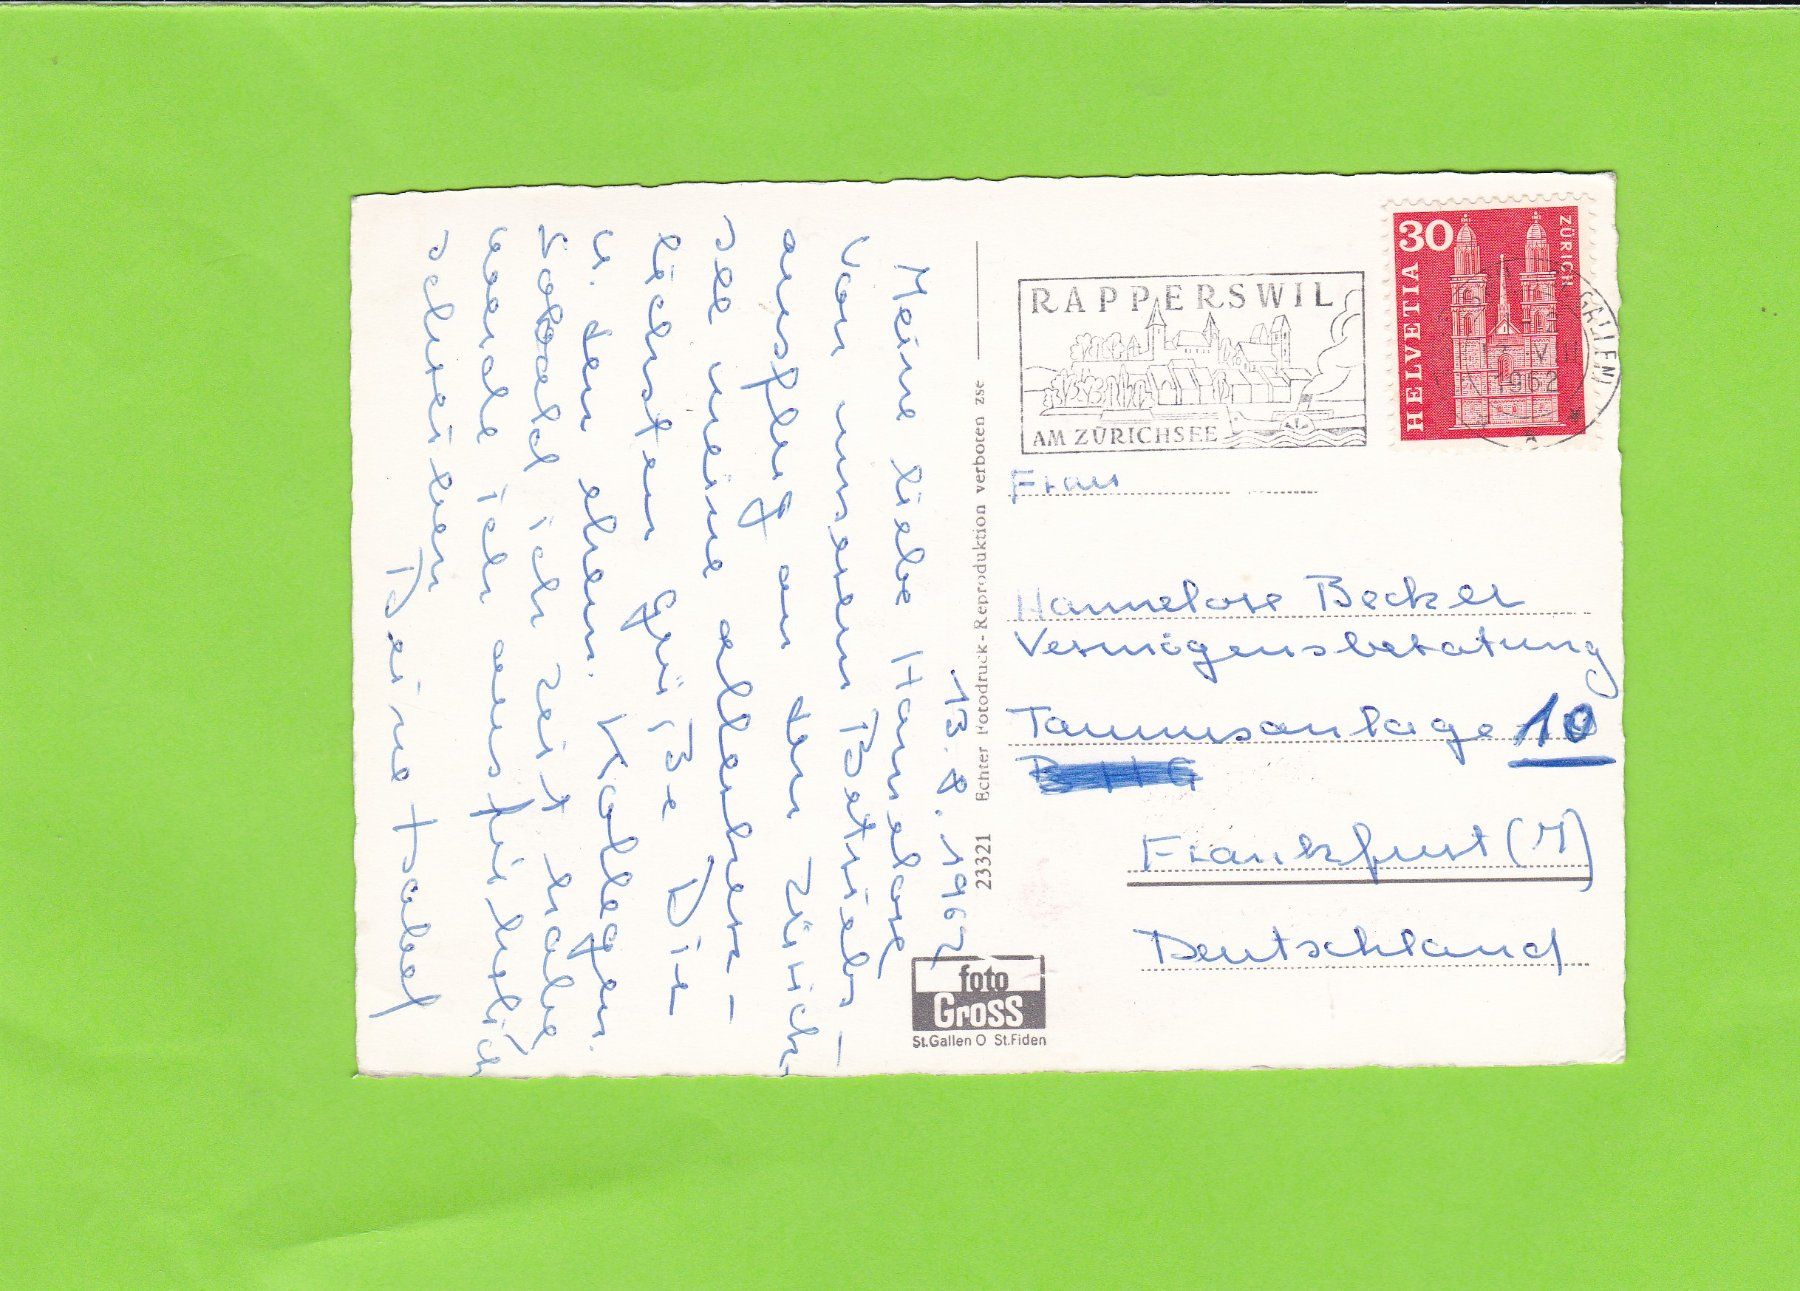 13.8.1962
Meine liebe Hannelore
Von unserem Betriebs-
ausflug an den Zürich-
see meine allerherz-
lichsten Grüße Dir
u. den ehem. Kollegen.
Sobald ich Zeit habe
werde ich ausführlich
schreiben
Deine Isabel
23321 Echter Fotodruck - Reproduktion verboten zse
foto
Gross
St.Gallen O St.Fiden
RAPPERSWIL
AM ZÜRICHSEE
30
HELVETIA
ZÜRICH
1962
Frau
Hannelore Becker
Vermögensberatung
Taunusanlage 10
Frankfurt (M)
Deutschland